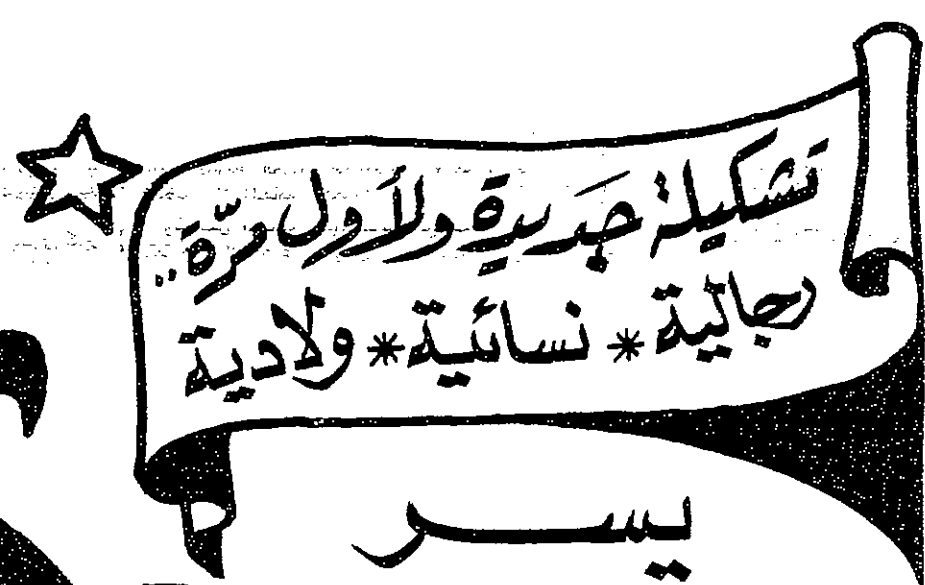 تشكيلة جديدة ولأول مرّة..
رجالية * نسائية * ولادية
يسر